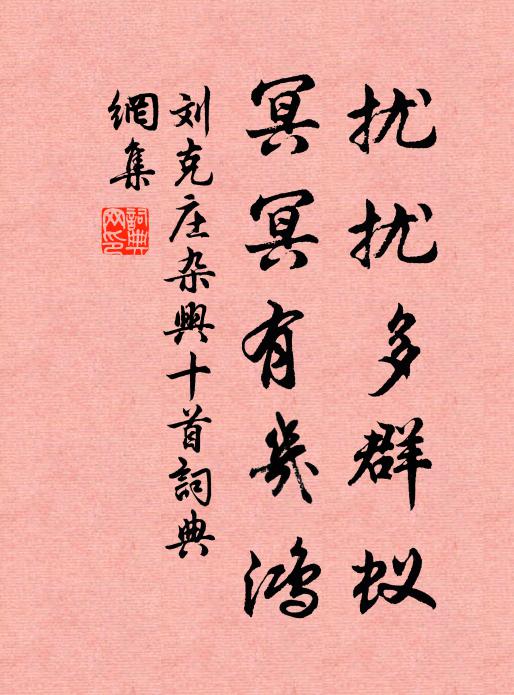 扰扰多群蚁
冥冥有几鸿
刘克庄杂興十首詞典
網集
詞典网印